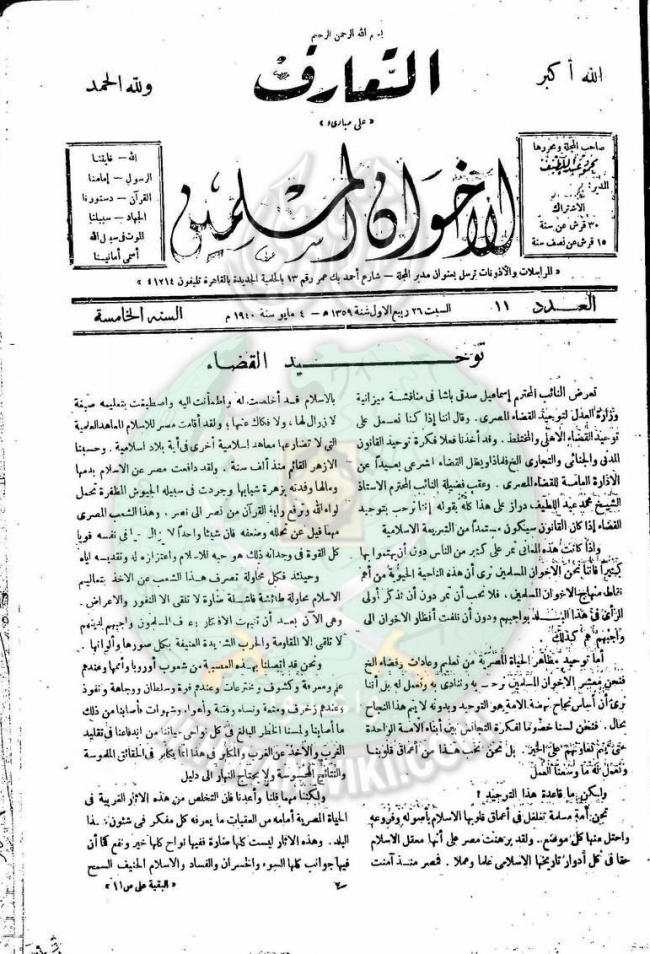 بسم الله الرحمن الرحيم
الله أكبر
التعارف
ولله الحمد
« على مبادىء »
الاخوان المسلمين
صاحب المجلة ومحررها
المدير:
الاشتراك
٣٠ قرش عن سنة
١٥ قرش عن نصف سنة
الله — غايتنا
الرسول — إمامنا
القرآن — دستورنا
الجهاد — سبيلنا
الموت فى سبيل الله
أسمى أمانينا
« المراسلات والأذونات ترسل بعنوان مدير المجلة — شارع أحمد بك عمر رقم ١٣ بالحلمية الجديدة بالقاهرة تليفون ٤١٢١٤ »
العدد ١١
السبت ٢٦ ربيع الاول سنة ١٣٥٩ ه — ٤ مايو سنة ١٩٤٠ م
السنه الخامسة
توحيد القضاء
تعرض النائب المحترم إسماعيل صدقى باشا فى مناقشة ميزانية
وزارة العدل لتوحيد القضاء المصرى . وقال اننا إذا كنا نعمل على
توحيد القضاء الاهلى والمختلط . وقد أخذنا فعلا فكرة توحيد القانون
المدنى والجنائى والتجارى الخ فلماذا يظل القضاء الشرعى بعيداً عن
الادارة العامة للقضاء المصرى . وعقب فضيلة النائب المحترم الاستاذ
الشيخ محمد عبد اللطيف دراز على هذا كله بقوله إننا نرحب بتوحيد
القضاء إذا كان القانون سيكون مستمداً من الشريعة الاسلامية
وإذا كانت هذه المعانى تمر على كثير من الناس دون أن يهتموا بها
كثيراً فاننا نحن الاخوان المسلمين نرى أن هذه الناحية الحيوية من أهم
نقاط منهاج الاخوان المسلمين . فلا نحب أن تمر دون أن نذكر أولى
الرأى فى هذا البلد بواجبهم ودون أن نلفت أنظار الاخوان الى
واجبهم هم كذلك
أما توحيد مظاهر الحياة المصرية من تعليم وعادات وقضاء الخ
فنحن معشر الاخوان المسلمين نرحب به وننادى به ونعمل له بل أننا
نرى أن أساس نجاح نهضة الامة هو التوحيد وبدونه لا يتم هذا النجاح
بحال . فنحن لسنا خصوما لفكرة التجانس بين أبناء الامة الواحدة
حتى يتم تعاونهم على الخير. بل نحن نحب هذا من أعماق قلوبنا
ونعمل له ما وسعنا العمل
ولكن ما قاعدة هذا التوحيد ؟
نحن أمة مسلمة تغلغل فى أعماق قلوبها الاسلام بأصوله وفروعه
واحتل منها كل موضع.. ولقد برهنت مصر على أنها معقل الاسلام
حقا فى كل أدوار تاريخها الاسلامى علما وعملا . فمصر منذ آمنت
بالاسلام قد أخلصت له واطمأنت اليه واصطبغت بتعاليمه صبغة
لا زوال لها ، ولا فكاك عنها ؛ ولقد أقامت مصر للاسلام المعاهد العلمية
التى لا تضارعها معاهد اسلامية أخرى فى أية بلاد اسلامية . وحسبنا
الازهر القائم منذ ألف سنة . ولقد دافعت مصر عن الاسلام بدمها
ومالها وفدته بزهرة شبابها وجردت فى سبيله الجيوش المظفرة تحمل
لواء الله وترفع راية القرآن من نصر الى نصر . وهذا الشعب المصرى
مهما قيل عن تحلله وضعفه فان شيئا واحداً لا يزال باقيا فى نفسه قويا
كل القوة فى وجدانه ذلك هو حبه للاسلام واعتزازه له وتقديسه اياه
وحينئذ فكل محاولة تصرف هذا الشعب عن الاخذ بتعاليم
الاسلام محاولة طائشة فاشلة ضارة لا تلقى الا النفور والاعراض .
وهى الآن بعد أن تنبهت الافكار وعرف المسلمون واجبهم لدينهم
لا تلقى إلا المقاومة والحرب الشديدة العنيفة بكل صورها وألوانها .
ونحن قد اتصلنا بهذه العصبة من شعوب أوروبا وأممها وعندهم
علم ومعرفة وكشوف ومخترعات وعندهم قوة وسلطان ووجاهة ونفوذ
وعندهم زخرف ومتعة ونساء وفتنة وأهواء وشهوات فأصابنا من ذلك
ما أصابنا ولمسنا الخطر البالغ فى كل نواحى حياتنا من اندفاعنا فى تقليد
الغرب والأخذ عن الغرب والمكابر فى هذا انما يكابر فى الحقائق الملموسة
والنتائج المحسوسة ولا يحتاج النهار الى دليل
ولكننا مهما قلنا وأعدنا فان التخلص من هذه الاثار الغريبة فى
الحياة المصرية أمامه من العقبات ما يعرفه كل مفكر فى شئون هذا
البلد . وهذه الاثار ليست كلها ضارة ففيها نواح كلها خير ونفع كما أن
فيها جوانب كلها السوء والخسران والفساد والاسلام الحنيف السمح
« البقية على ص ١١ »